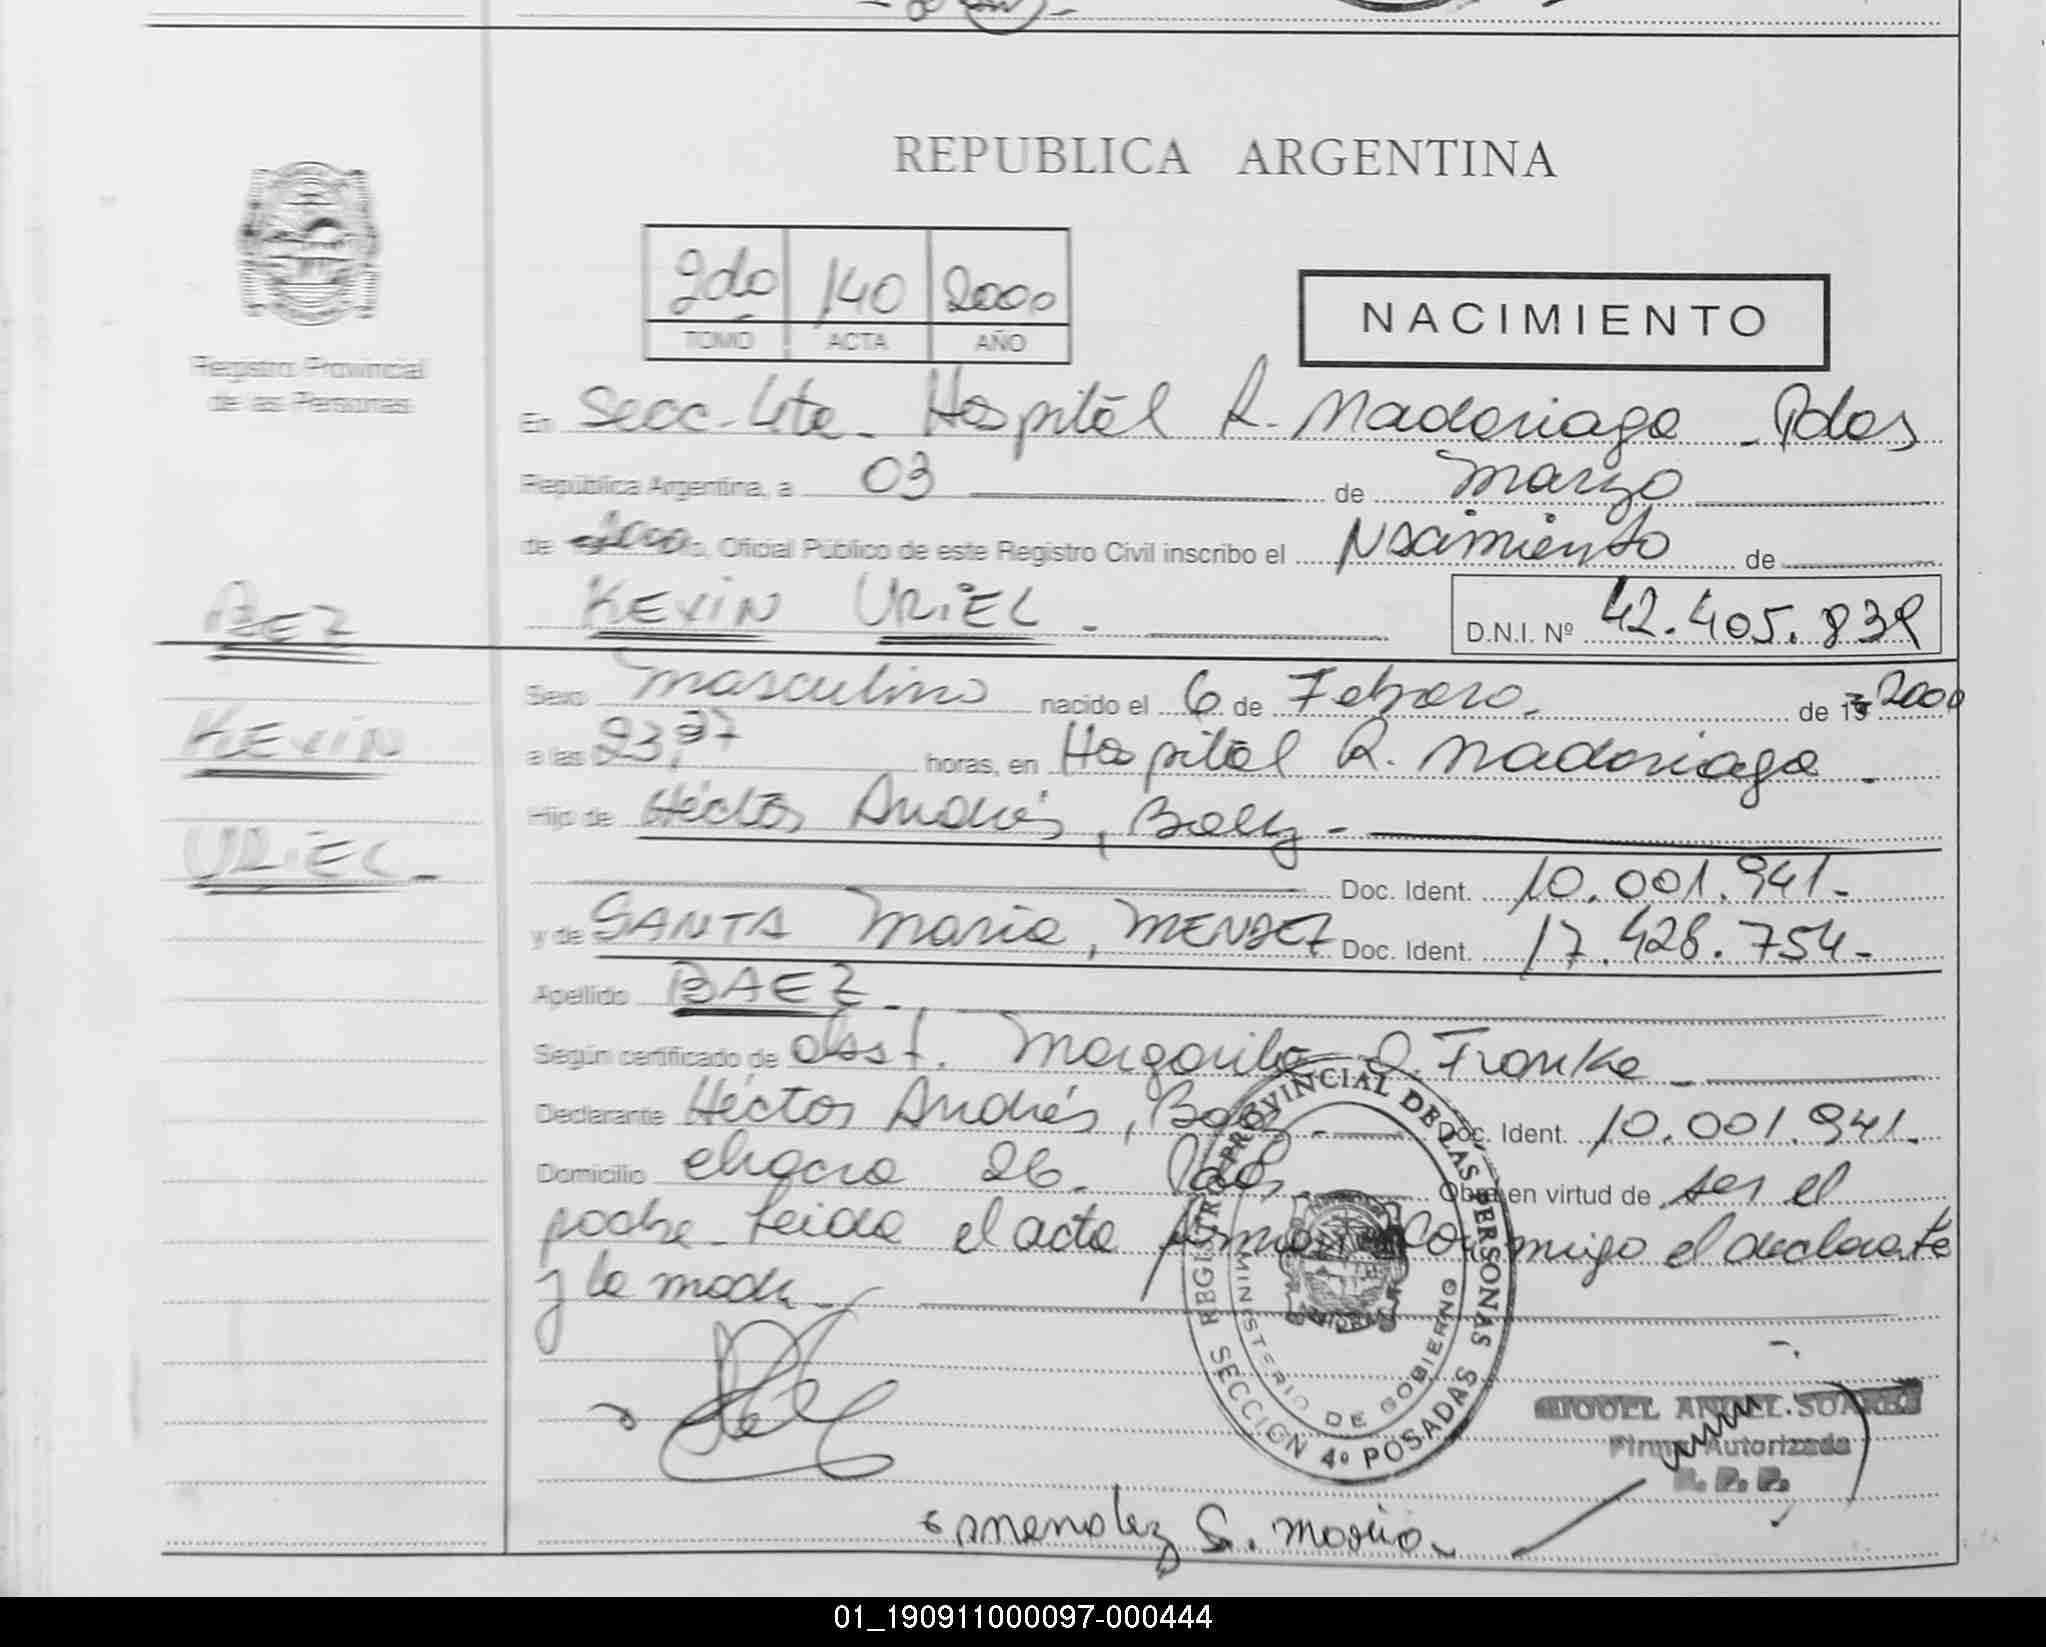 REPUBLICA ARGENTINA
Registro Provincial
de las Personas
2do 140 2000
TOMO ACTA AÑO
NACIMIENTO
En Secc. 4ta - Hospital R. Madariaga - Pdas
República Argentina, a 03 de Marzo
de 2000, Oficial Público de este Registro Civil inscribo el Nacimiento de
KEVIN URIEL - D.N.I. Nº 42.405.839
BAEZ
KEVIN
URIEL -
Sexo masculino nacido el 6 de Febrero de 19 2000
a las 23,37 horas, en Hospital R. Madariaga -
Hijo de Héctor Andrés, Baez -
Doc. Ident. 10.001.941-
y de SANTA Maria, MENDEZ Doc. Ident. 17.428.754-
Apellido BAEZ -
Según certificado de Obst. Margarita Franke -
Declarante Héctor Andrés, Baez - Doc. Ident. 10.001.941-
Domicilio chacra 26 - Pdas, Obra en virtud de ser el
padre - Leida el acta firman conmigo el declarante
y la madre -
REGISTRO PROVINCIAL DE LAS PERSONAS
MINISTERIO DE GOBIERNO
SECCION 4º POSADAS
MIGUEL ANGEL SUAREZ
Firma Autorizada
R. P. P.
Mendez S. Maria
01_190911000097-000444